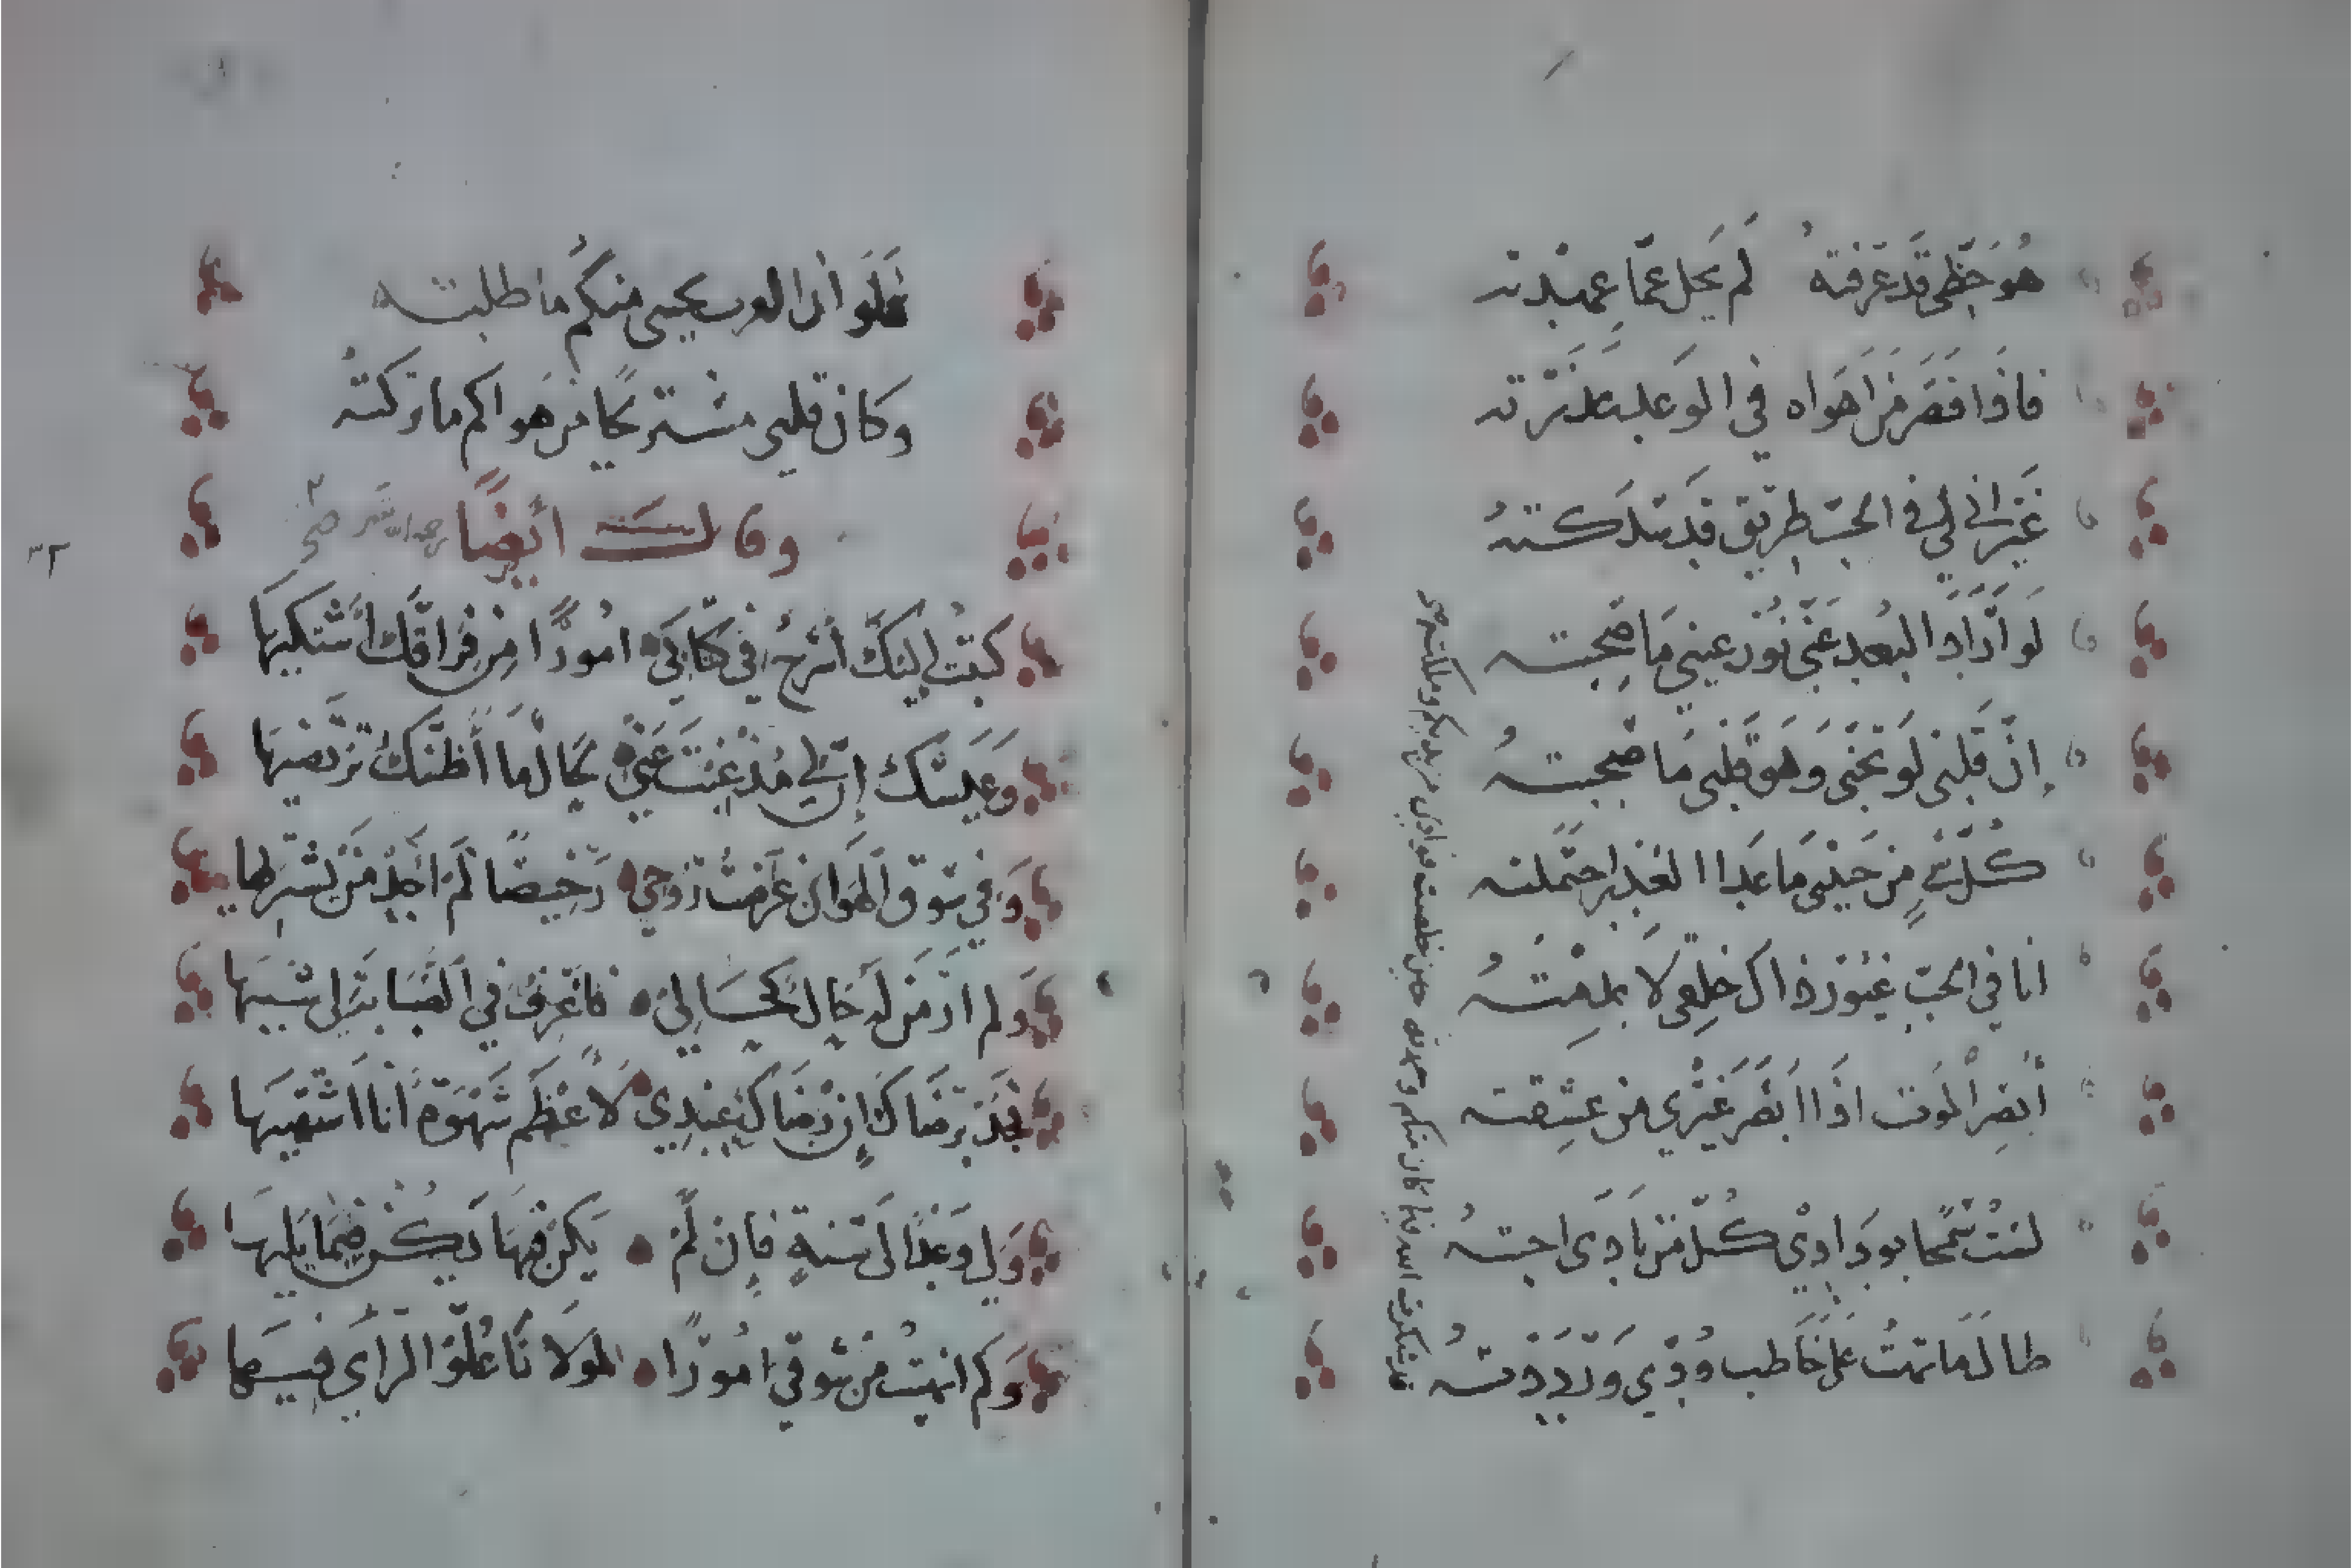 هُوَ حَظّى قَد عَرَفتهُ لَم يَحل عَمّا عهدته
فاذا قصّر من اهواه فى الوعد عذرته
غَيرَ انّ لي في الحبّ طريق قد سلكته
لَو اَرادَ البُعدَ عَنّى نُورُ عيني مَا صَحِبته
إنّ قَلبى لَو تجنّى وَهوَ قلبى مَا صَحِبتهُ
كُلّ شَىءٍ مِن حبيبى مَا عَدا الغدر احتملته
انا في الحبّ غيُورٌ ذاك خلقى لا عدمتهُ
أبصر الموت اذا ابصر غَيْرى من عشقته
لستُ سَمحا بودادي كُلّ من نادى اجبتهُ
طالما تهتُ على خاطب وُدّي وَرددتهُ
فلو ان العرب يحيى منكم ما طلبته
وكان قلبى مشتركا فى هواكم ما تركتهُ
وقال ايضًا رحمه الله
كتبتُ اليك أشرحُ فى كتابى امورًا من فراقك اشتكيها
وَعيشك إنّني مُذ غِبتَ عَنّى بحال ما أظنّك ترتضيها
وَفي سوق الهوان عرضتُ روحي رخيصًا لم اجد من يشتريها
ولم ار من له حال كحالى فاعرف في الصَبابة لى شبيها
فجد برضاك إن رضاك عندي لاعظم شهوة انا اشتهيها
وَلي وَعدٌ الى سنة فان لم يكن فيها يكن فيما يليها
وَكم انهيتُ من شوقي امورًا لمولانا عُلوّ الراى فيها